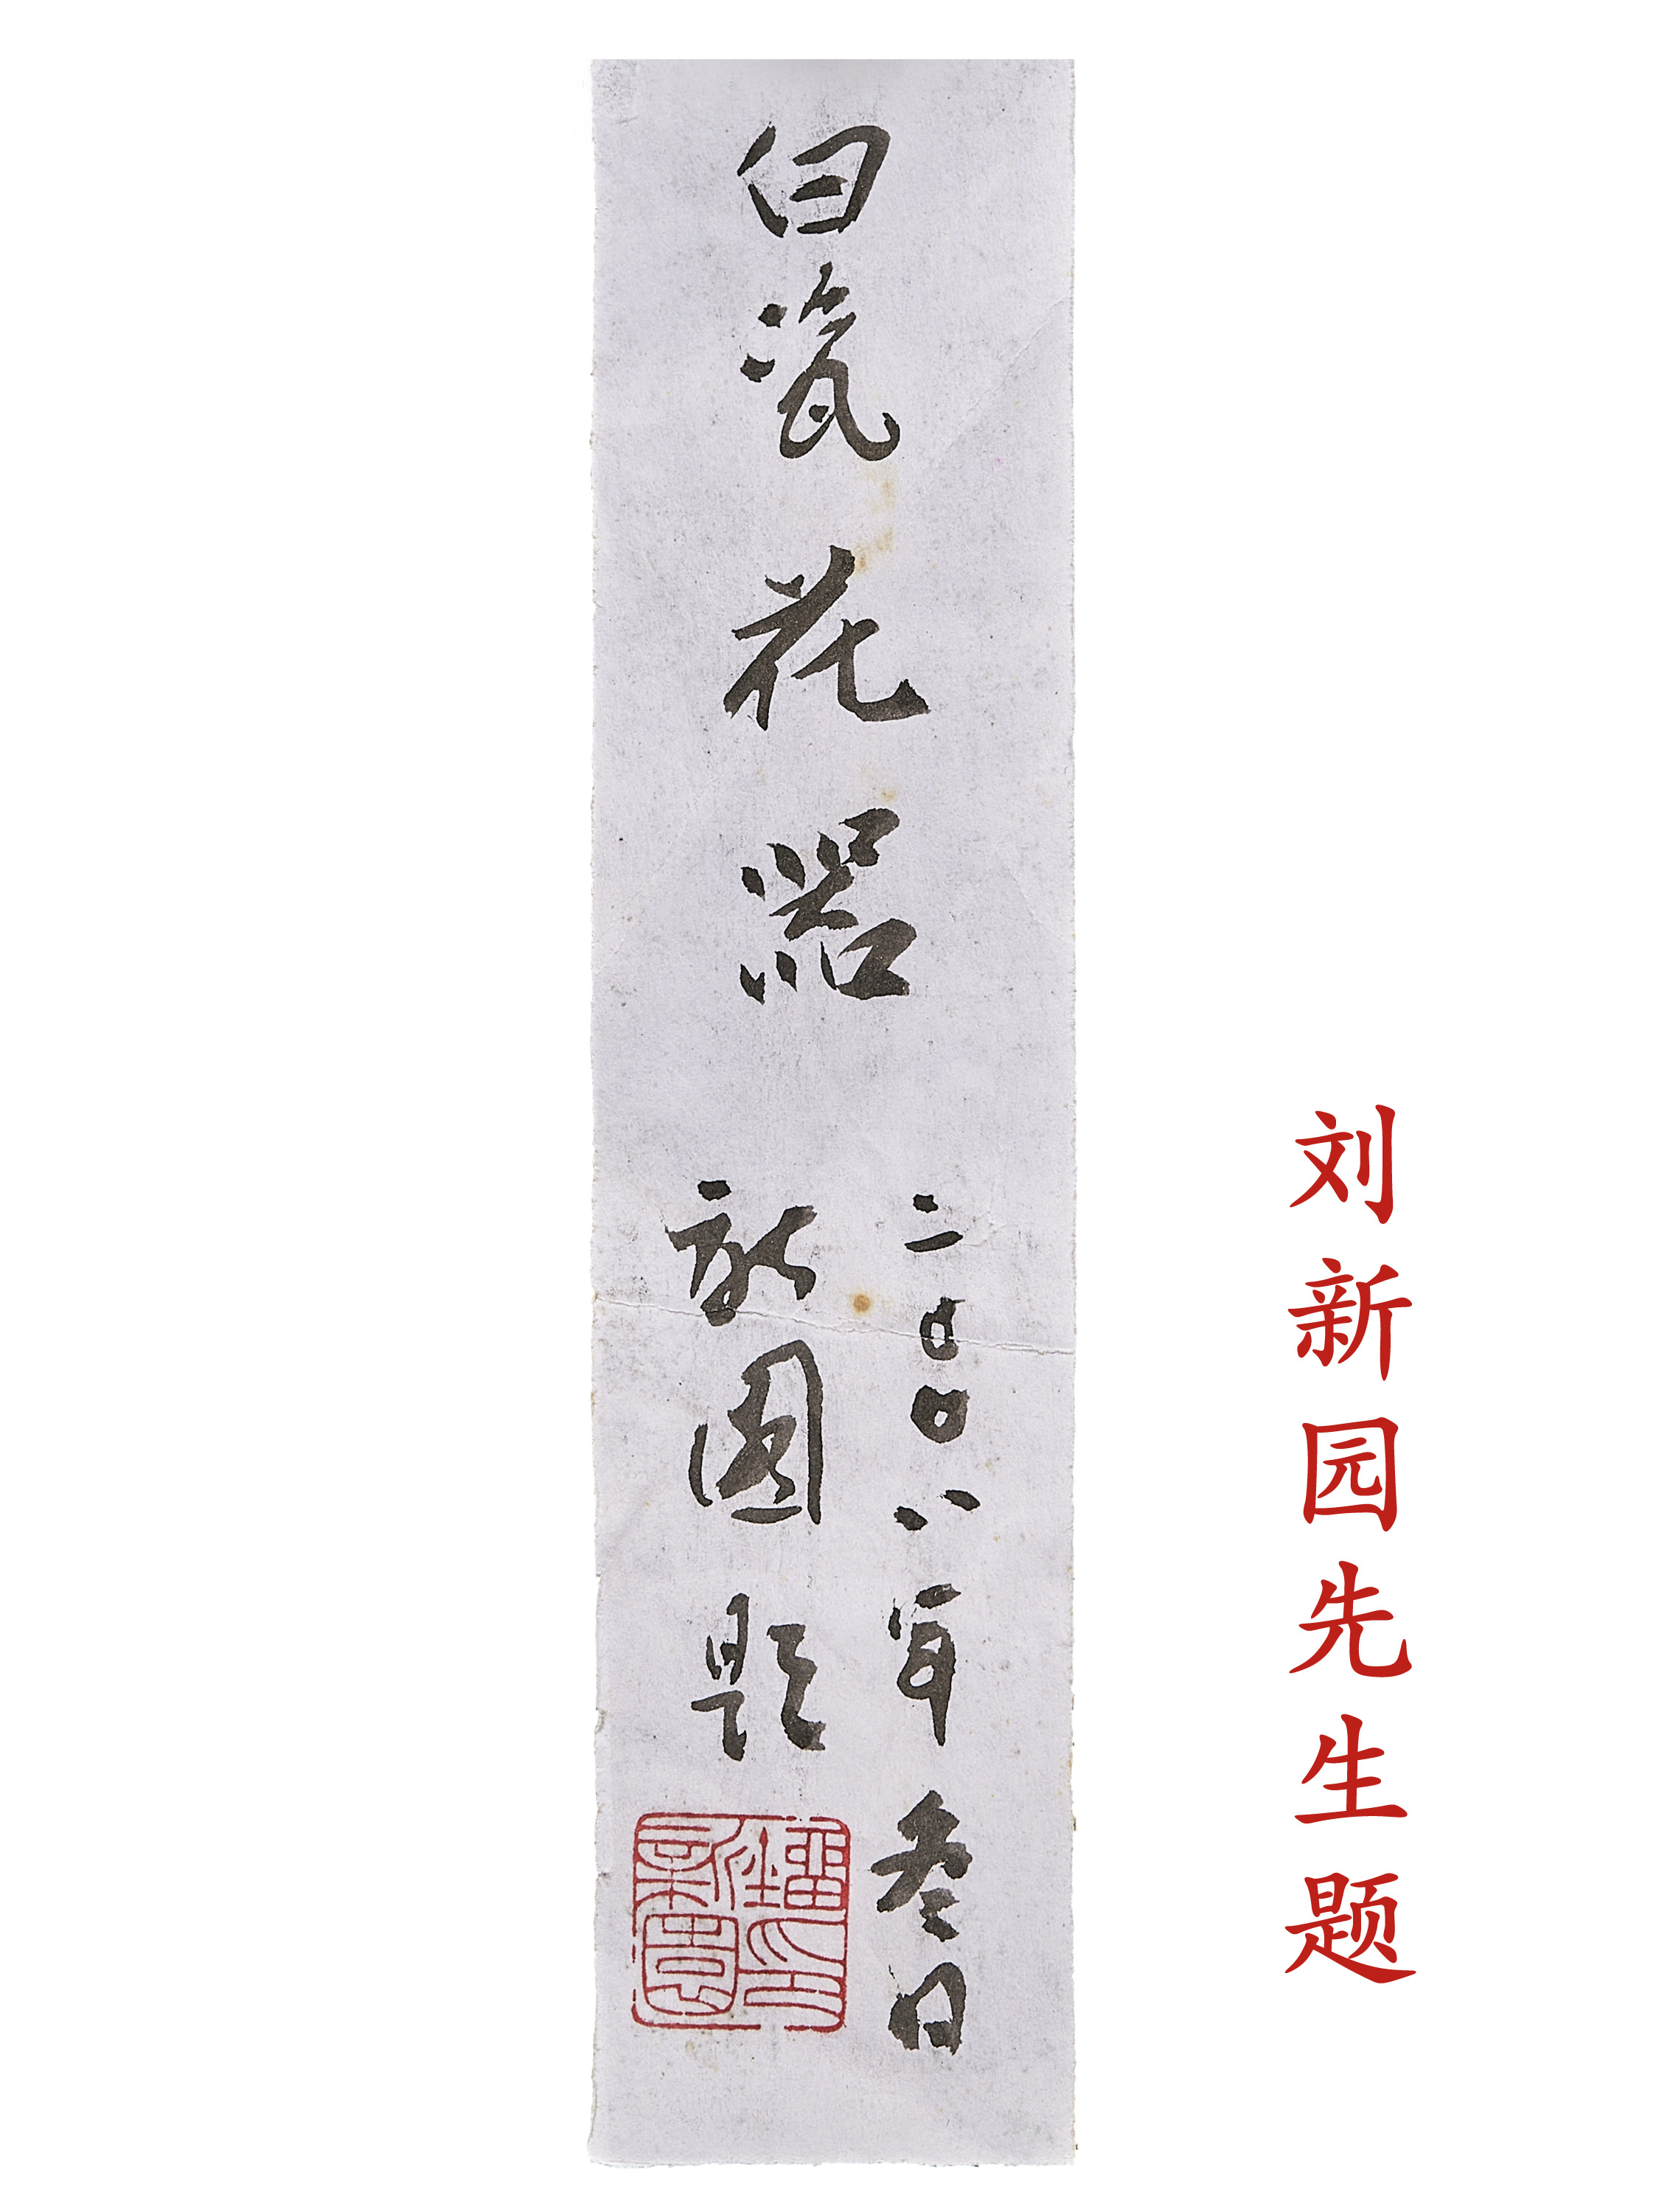 白瓷花器
二〇〇八年冬日
新園題
刘新园先生题